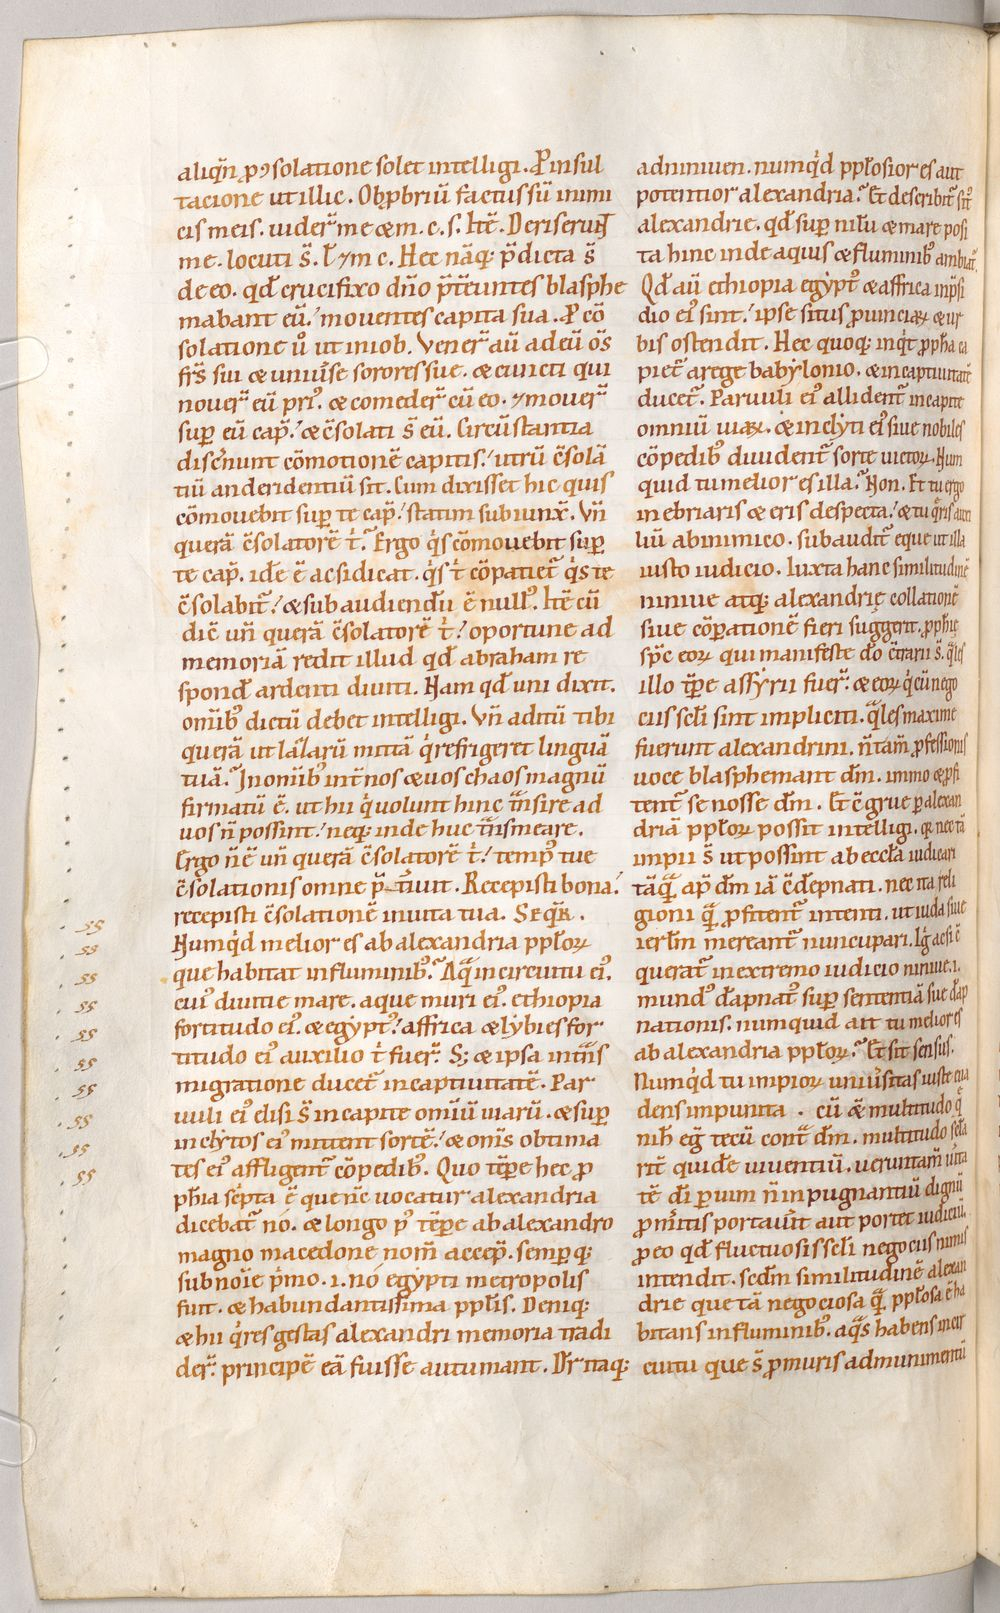 aliqn̄ p ꝯsolatione solet intelligi. P insul
tacione ut illic. Obp̱briū factus sū inimi
cis meis. uider̄ me & m. c. s. Itē. Deriserunt
me. locuti s̄. l. & m c. Hec nāq; p̄dicta s̄
de eo. qđ crucifixo dn̄o p̄tereuntes blasphe
mabant eū. mouentes capita sua. P cō
solatione ů ut in iob. Vener̄ aū ad eū om̄s
frs̄ sui & uniuˀse sorores sue. & cuncti qui
nouer̄ eū priˀ. & comeder̄ cū eo. & mouer̄
suꝑ eū cap̄. & cōsolati s̄ eū. Circūstantia
discˀnunt cōmotionē capitis. utrū cōsolā
tiū an deridentiū sit. Cum dixisset hic quis
cōmouebit suꝑ te cap̄. statim subiunx̄. Vn̄
querā cōsolatorē t̄. Ergo q̇s cōmouebit suꝑ
te cap̄. idē ē ac si dicat. q̇s t̄ cōpatiet̄ q̇s te
cōsolabit̄. & subaudiendū ē nullˀ. Itē cū
dic̄ un̄ querā cōsolatorē t̄. oportune ad
memoriā redit illud qđ abraham re
spond̄ ardenti diuiti. Nam qđ uni dixit.
omībˀ dictū debet intelligi. Vn̄ aditū tibi
querā ut lazarū mittā q̇ refrigeret linguā
tuā. In omībˀ int̄ nos & uos chaos magnū
firmatū ē. ut hii q̇ uolunt hinc tᵃnsire ad
uos n̄ possint. neq; inde huc tᵃnsmeare.
Ergo n̄ ē un̄ querā cōsolatorē t̄. tempˀ tue
cōsolationis omne p̄teriuit. Recepisti bona.
recepisti cōsolationē in uita tua. Seqr̄.
Numqd̄ melior es ab alexandria ppłoꝝ
que habitat in fluminibˀ. Aqᵃ in circuitu eiˀ.
cuiˀ diuitie mare. aque muri eiˀ. ethiopia
fortitudo eiˀ. & egyptˀ. affrica & lybies for
titudo eiˀ auxilio t̄ fuer̄. S; & ipsa in tᵃns
migratione ducet̄ in captiuitatē. Par
uuli eiˀ elisi s̄ in capite omniū uiarū. & suꝑ
inclytos eiˀ mittent sortē. & om̄s obtima
tes eiˀ affligent̄ cōpedibˀ. Quo tēꝑe hec pro
phia scˀpta ē que nc̄ uocatur alexandria
dicebat̄ no. & longo pˀ tēꝑe ab alexandro
magno macedone nom̄ accep̄. semꝑ q;
sub noīe pˀmo .i. no egypti metropolis
fuit. & habundantissima ppłis. Deniq;
& hii q̇ res gestas alexandri memoria tradi
der̄. principē eā fuisse autumant. Dr̄ itaq;
ad niniuen. numqd̄ ppłosior es aut
potentior alexandria. Et describit̄ sitˀ
alexandrie. qđ suꝑ nilū & mare posi
ta hinc inde aquis & fluminibˀ ambiat̄.
Qđ aū ethiopia egyptˀ & affrica in p̄si
dio eiˀ sint. ipse situs ꝓuinciaꝝ & ur
bis ostendit. Hec quoq; inqt̄ ꝓpha ca
piet̄ a rege babylonio. & in captiuitatē
ducet̄. Paruuli eiˀ allident̄ in capite
omniū uiaꝝ. & inclyti eiˀ siue nobiles
cōpedibˀ diuident̄ sorte uictoꝝ. Num
quid tu melior es illa. Non. Et tu ergo
inebriaris & eris despecta. & tu q̄ris auxi
liū ab inimico. subaudit̄ eque ut illa
iusto iudicio. Iuxta hanc similitudinē
niniue atq; alexandrie collationē
siue cōparationē fieri suggerit. ꝓphię
spc̄ eoꝝ qui manifeste do cōtrarii s̄. qᵃles
illo tꝑe assyrii fuer̄. & eoꝝ q̇ cū nego
ciis scłi sint impliciti. qᵃles maxime
fuerunt alexandrini. n̄ tam̄ ꝓfessionis
uoce blasphemant dm̄. immo & ꝓfi
tent̄ se nosse dm̄. Et cōgrue ꝑ alexan
driā ppłoꝝ possit intelligi. qꝛ nec tā
impii s̄ ut possint ab eccła iudicari
tāqᵃ ap̄ dm̄ iā cōdepnati. nec ita reli
gioni qᵃ ꝓfitent̄ intenti. ut iuda siue
ierłm mereant̄ nuncupari. Ig̊ ac si ē
querat̄ in extremo iudicio niniue .i.
mundˀ dāpnatˀ suꝑ sententiā sue dāp
nationis. numquid ait tu melior es
ab alexandria ppłoꝝ. Et sit sensus.
Numqd̄ tu impioꝝ uniuˀsitas iuste eua
dens impunita. cū & multitudo q̄
nih̄ eg̅ tecū contᵃ dm̄. multitudo scła
ris quidē uiuentiū. ueruntam̄ uita
tē di ꝑ uim n̄ inpugnantiū dignū
ꝓ mˀitis portauˀit aut portet iudiciū.
ꝓ eo qđ fluctuosis scłi negociis nimis
intendit. scdm̄ similitudinē alexan
drie que tā negociosa qᵃ ppłosa ē ha
bitans in fluminibˀ. aqᵃs habens in cir
cuitu que s̄ ꝓ muris ad munimentū